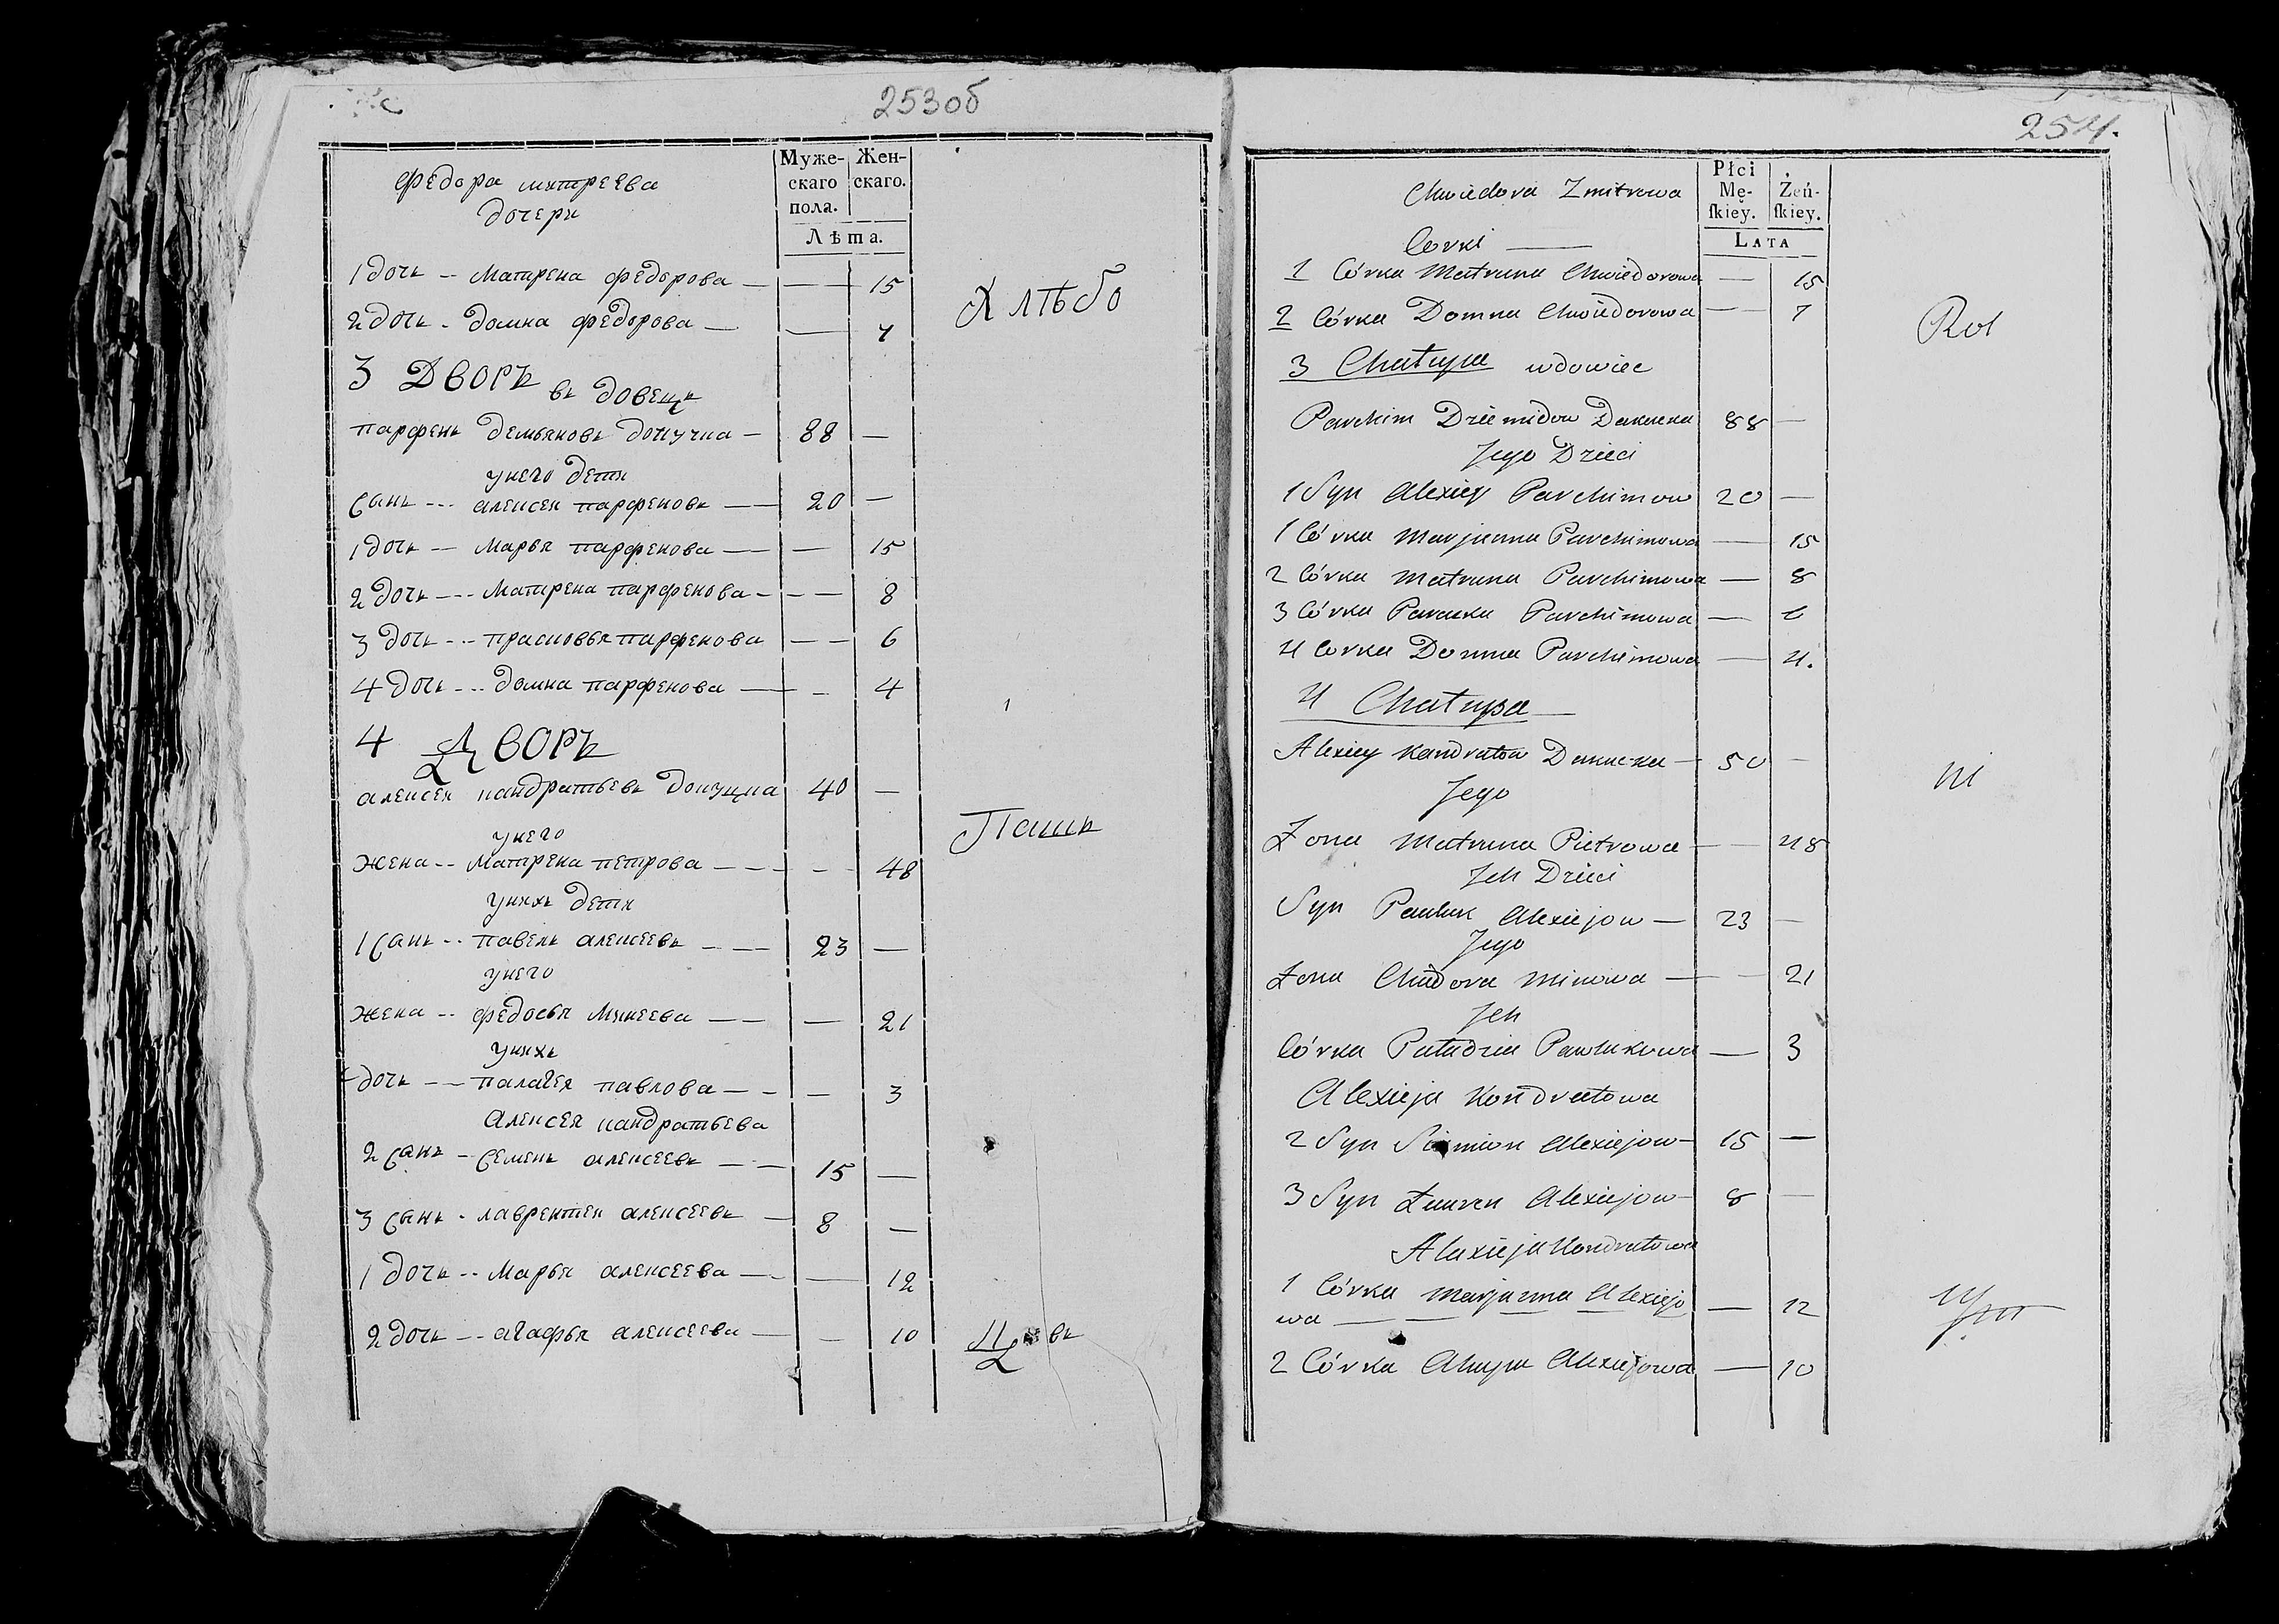 253об
Федора митреева
дочери
Муже-
скаго
пола.
Жен-
скаго.
Лѣта.
1 дочь -- Матрена федорова — — 15
2 дочь - домна федорова — — 7
Хлѣбо
3 Дворъ въ довецъ
парфенъ демьяновъ докучка — 88 —
унего дети
сынъ --- алексеи парфеновъ — 20 —
1 дочь — Марья парфенова — — 15
2 дочь --- Матрена парфенова - — 8
3 дочь --- прасковья парфенова — 6
4 дочь --- домна парфенова — - 4
4 Дворъ
алексеи кандратьевъ докуцка 40 —
Паши
унего
жена -- Матрена петрова --- - 48
унихъ дети
1 сынъ -- павелъ алексеевъ - — 23 —
унего
жена -- федосья Микеева — — 21
унихъ
дочь — палагея павлова — - — 3
Алексея кандратьева
2 сынъ - семенъ алексеевъ — 15 —
3 сынъ - лаврентеи алексеевъ — 8 —
1 дочь -- Марья алексеева — — 12
2 дочь --- агафья алексеева — — 10
Ц въ
254.
Chwiedora Zmitrowa
Płci
Mę-
ſkiey.
Żeń-
ſkiey.
LATA
Corki —
1 Córka Matruna Chwiedorowa — 15
2 Córka Domna Chwiedorowa — 7
Rol
3 Chałupa wdowiec
Parchim Dziemidow Dakuczka 88 —
Jego Dzieci
1 Syn Alexiey Parchimow 20 —
1 Córka Marjanna Parchimowa — 15
2 Córka Matruna Parchimowa — 8
3 Córka Paraska Parchimowa — 6
4 Corka Domna Parchimowa — 4.
4 Chałupa
Alexiey Kandratow Dakuczka — 50 —
ni
Jego
Żona Matruna Pietrowa — — 48
Jch Dzieci
Syn Pauluk Alexiejow — 23 —
Jego
Żona Chidora Minowa — — 21
Jch
Córka Paładzia Pawlukowa — 3
Alexieja Kondratowa
2 Syn Siemion Alexiejow — 15 —
3 Syn Łauren Alexiejow — 8 —
Alaxieja Kondratowa
1 Córka Marjanna Alexiejo
wa — — — 12
2 Córka Ahapa Alexiejowa — 10